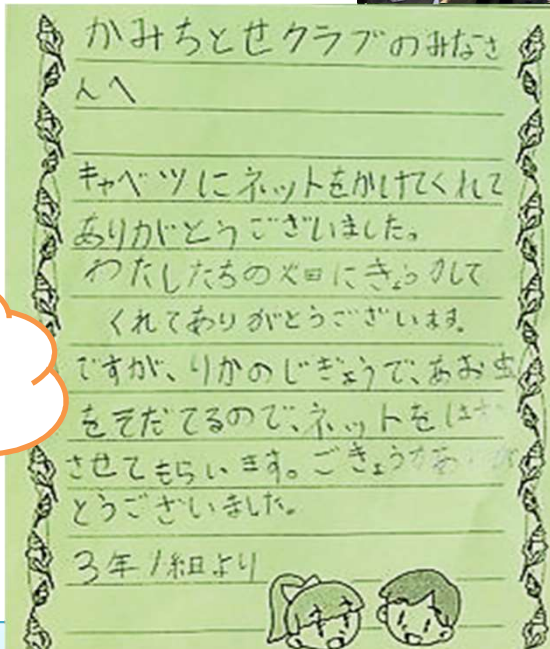 かみちとせクラブのみなさ
んへ
キャベツにネットをかけてくれて
ありがとうございました。
わたしたちの火田にきょう力して
くれてありがとうございます。
ですが、りかのじぎょうで、あお虫
をそだてるので、ネットを
させてもらいます。ごきょう
とうございました。
3年1組より